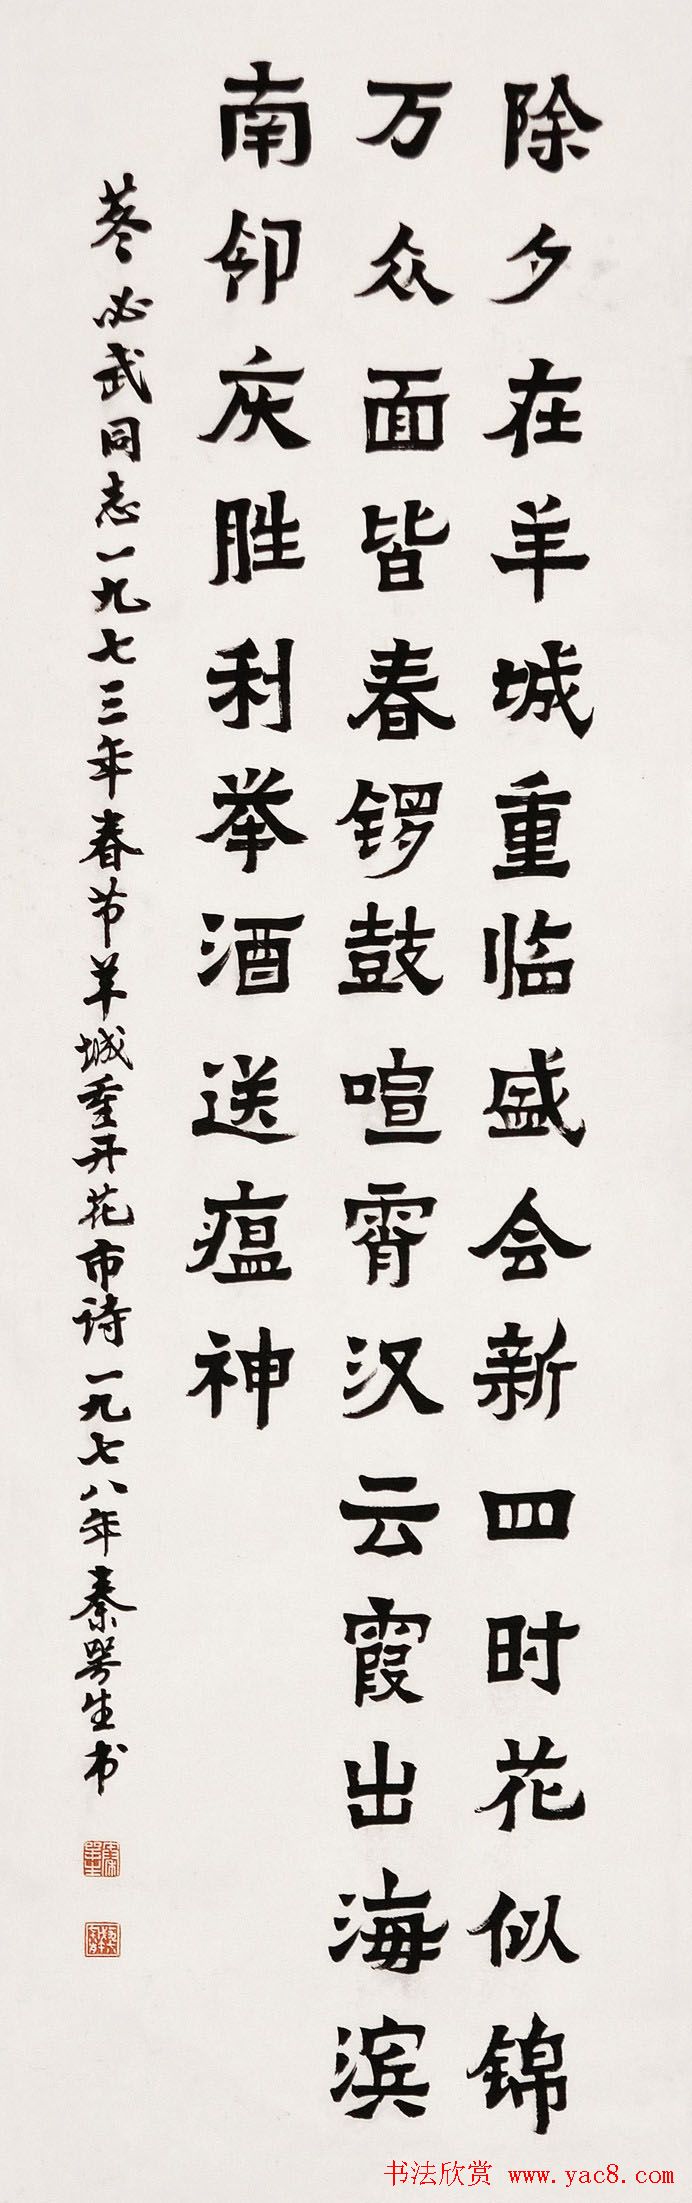 除夕在羊城重临盛会新四时花似锦
万众面皆春锣鼓喧霄汉云霞出海滨
南邻庆胜利举酒送瘟神
董必武同志一九七三年春节羊城重开花市诗一九七八年秦咢生书
书法欣赏 www.yac8.com